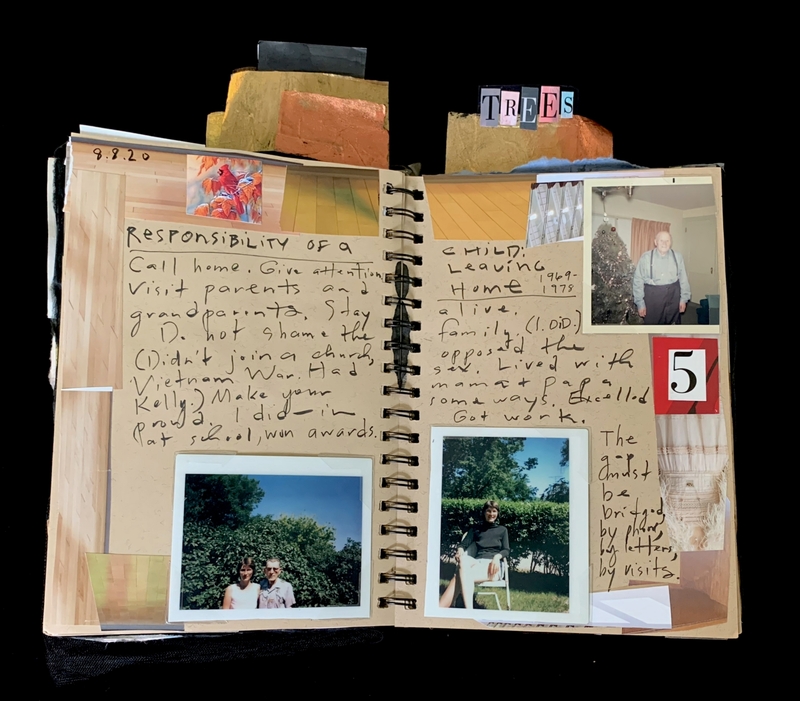 TREES
8.8.20
RESPONSIBILITY OF A
Call home. Give attention
visit parents and
grandparents. Stay
D. not shame the
(I didn't join a church,
Vietnam War. Had
Kelly.) Make your
proud. I did—in
(at school, won awards.
CHILD:
Leaving
Home 1969-
1978
alive.
family. (I. DiD.)
opposed the
sex. Lived with
mama & papa
some ways. Excelled
Got work.
5
The
gap
must
be
bridged,
by phone,
by letters,
by visits.